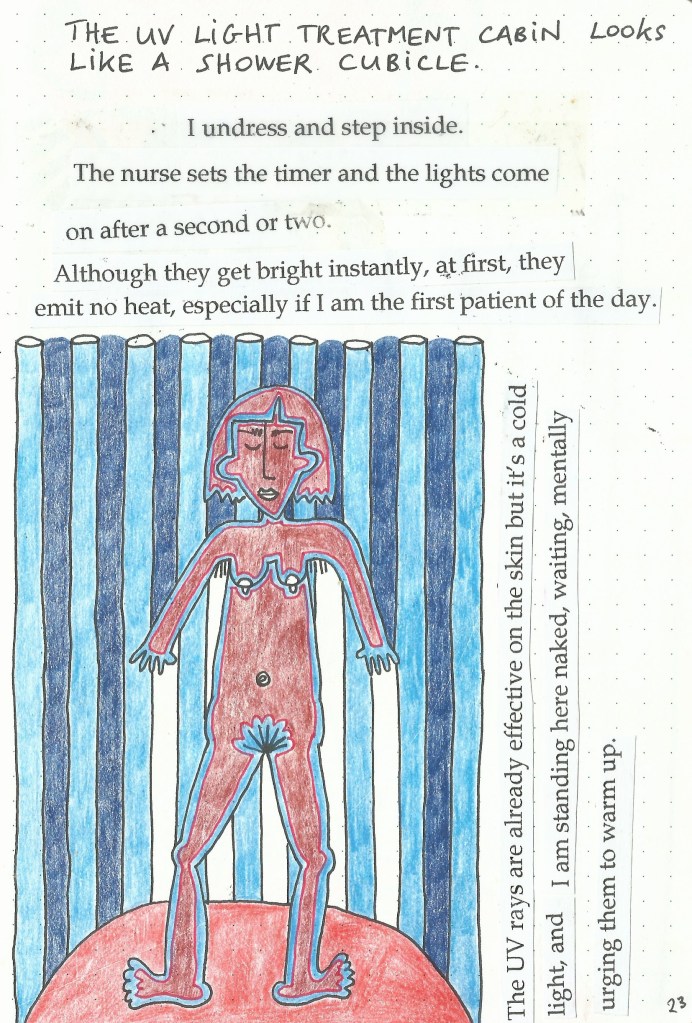 THE UV LIGHT TREATMENT CABIN LOOKS
LIKE A SHOWER CUBICLE.
I undress and step inside.
The nurse sets the timer and the lights come
on after a second or two.
Although they get bright instantly, at first, they
emit no heat, especially if I am the first patient of the day.
The UV rays are already effective on the skin but it's a cold
light, and I am standing here naked, waiting, mentally
urging them to warm up.
23